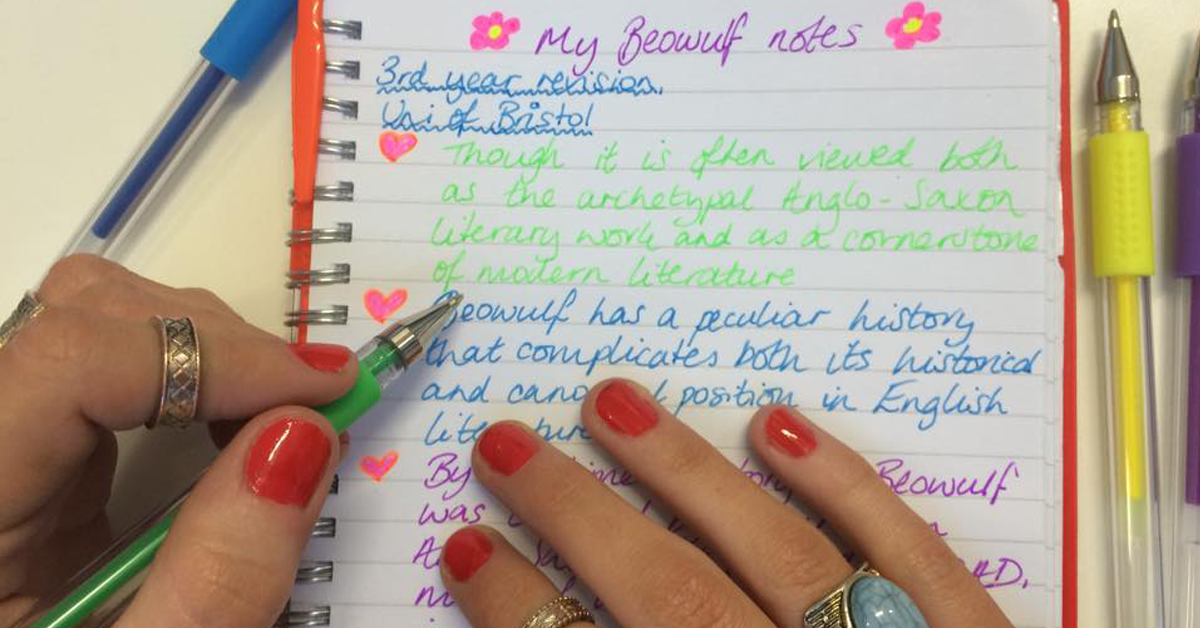 My Beowulf notes
3rd year revision.
Uni of Bristol
Though it is often viewed both
as the archetypal Anglo-Saxon
literary work and as a cornerstone
of modern literature
Beowulf has a peculiar history
that complicates both its historical
and position in English
By Beowulf
was
AD.